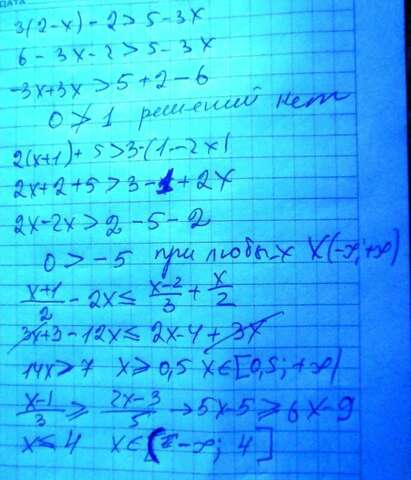 ДАТА
3(2-x)-2>5-3x
6-3x-2>5-3x
-3x+3x>5+2-6
0≯1 решений нет
2(x+1)+5>3-(1-2x)
2x+2+5>3-1+2x
2x-2x>2-5-2
0>-5 при любых x X(-∞;+∞)
(x+1)/2-2x≤(x-2)/3+x/2
3x+3-12x≤2x-4+3x
14x≥7 x≥0,5 x∈[0,5;+∞)
(x-1)/3≥(2x-3)/5→5x-5≥6x-9
x≤4 x∈(-∞;4]